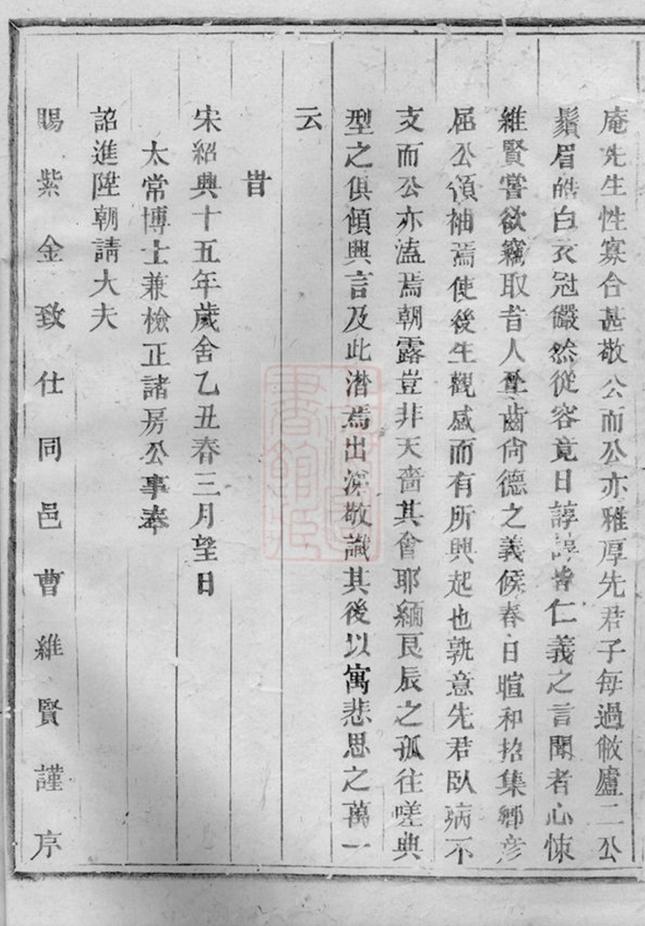 庵先生性寡合甚敬公而公亦雅厚先君子每過敝廬二公
鬚眉皓白衣冠儼然從容竟日諄諄皆仁義之言聞者心悚
維賢嘗欲竊取昔人壐齒尚德之義候春日暄和招集鄉彦
屈公領袖焉使後生觀感而有所興起也孰意先君臥病不
支而公亦溘焉朝露豈非天嗇其會耶緬良辰之孤往嗟典
型之俱傾興言及此潸焉出涕敬識其後以寓悲思之萬一
云
旹
宋紹興十五年歲舍乙丑春三月望日
太常博士兼檢正諸房公事奉
詔進陞朝請大夫
賜紫金致仕同邑曹維賢謹序